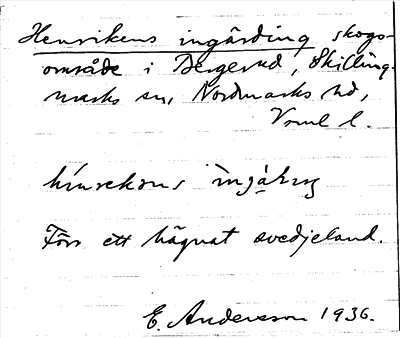 Henrikens ingärding skogs-
område i Bergerud, Skillings-
marks sn, Nordmarks hd,
Vrml l.
hínrekens
Förr ett hägnat svedjeland.
E. Andersson 1936.